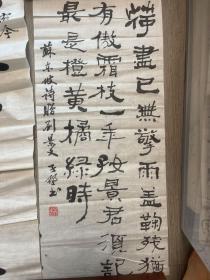 荷盡已無擎雨盖鞠殘猶
有傲霜枝一年好景君須記
最是橙黄橘緑時
蘇東坡詩贈劉景文